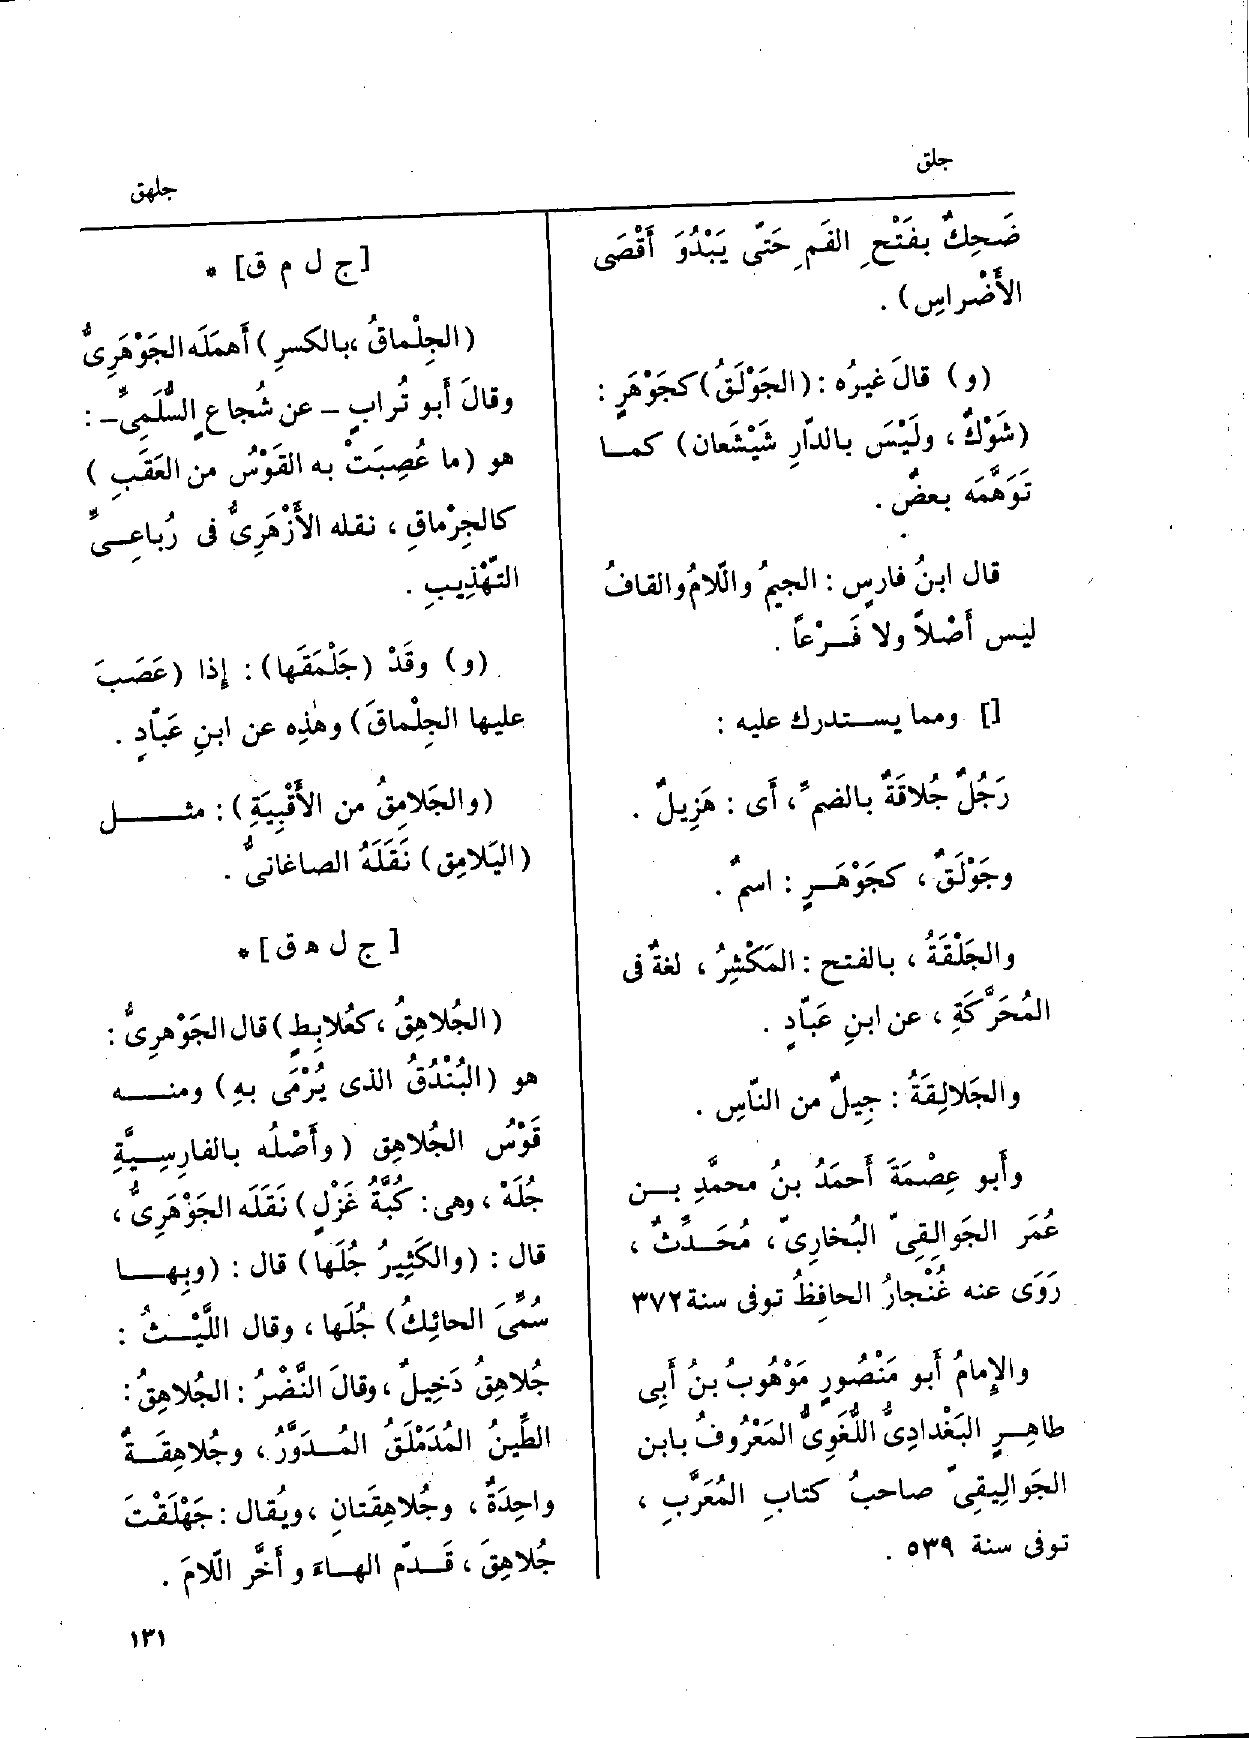 جلق
جلهق
ضَحِكٌ بفَتْحِ الفَمِ حَتَّى يَبْدُوَ أَقْصَى
الأَضْراسِ) .
(و) قالَ غيرُه : (الجَوْلَقُ) كجَوْهَرٍ :
(شَوْكٌ ، ولَيْسَ بالدّارِ شَيْشَعان) كمــا
تَوَهَّمَه بعضٌ .
قال ابنُ فارِسٍ : الجيمُ واللّامُ والقافُ
ليس أَصْلاً ولا فَــرْعاً .
[] ومما يســتدرك عليه :
رَجُلٌ جُلاقَةٌ بالضمِّ ، أَى : هَزِيلٌ .
وجَوْلَقٌ ، كجَوْهَــرٍ : اسمٌ .
والجَلْقَةُ ، بالفتح : المَكْشِرُ ، لغةٌ فى
المُحَرَّكَةِ ، عن ابنِ عَبّادٍ .
والجَلالِقَةُ : جِيلٌ من النّاسِ .
وأَبو عِصْمَةَ أَحمَدُ بنُ محمَّدِ بــن
عُمَر الجَوالِقِىّ البُخارِىّ ، مُحَــدِّثٌ ،
رَوَى عنه غُنْجارُ الحافِظُ توفى سنة ٣٧٢
والإِمامُ أَبو مَنْصُورٍ مَوْهُوبُ بنُ أَبِى
طاهِــرٍ البَغْدادِىُّ اللُّغَوِىُّ المَعْرُوفُ بابن
الجَوالِيقِىّ صاحبُ كتابِ المُعَرَّبِ ،
توفى سنة ٥٣٩ .
[ج ل م ق] *
(الجِلْماقُ ، بالكسرِ) أَهمَلَه الجَوْهَرِىُّ
وقالَ أَبو تُرابٍ - عن شُجاعٍ السُّلَمِىِّ - :
هو (ما عُصِبَتْ به القَوْسُ من العَقَبِ )
كالجِرْماقِ ، نقله الأَزْهَرِىُّ فى رُباعِــىِّ
التَّهْذِيبِ .
(و) وقَدْ (جَلْمَقَها) : إِذا (عَصَبَ
عليها الجِلْماقَ) وهٰذِه عن ابنِ عَبّادٍ .
(والجَلامِقُ من الأَقْبِيَةِ ) : مثــــل
(اليَلامِق) نَقَلَهُ الصاغانىُّ .
[ ج ل ه ق ] *
(الجُلاهِقُ ، كعُلابِطٍ) قال الجَوْهرِىُّ :
هو (البُنْدُقُ الذى يُرْمَى بهِ) ومنــــه
قَوْسُ الجُلاهِق (وأَصْلُه بالفارِسِــيَّةِ
جُلَهْ ، وهى : كُبَّةُ غَزْلٍ) نَقَلَه الجَوْهَرِىُّ ،
قال : (والكَثِيرُ جُلَها) قال : (وبِهــا
سُمِّىَ الحائِكُ) جُلَها ، وقال اللَّيْــثُ :
جُلاهِقُ دَخِيلٌ ، وقالَ النَّضْرُ : الجُلاهِقُ :
الطِّينُ المُدَمْلَقُ المُــدَوَّرُ ، وجُلاهِقَــةٌ
واحِدَةٌ ، وجُلاهِقَتانِ ، ويُقال : جَهْلَقْتَ
جُلاهِقَ ، قَــدَّم الهــاءَ و أَخَّر الّلامَ .
١٣١